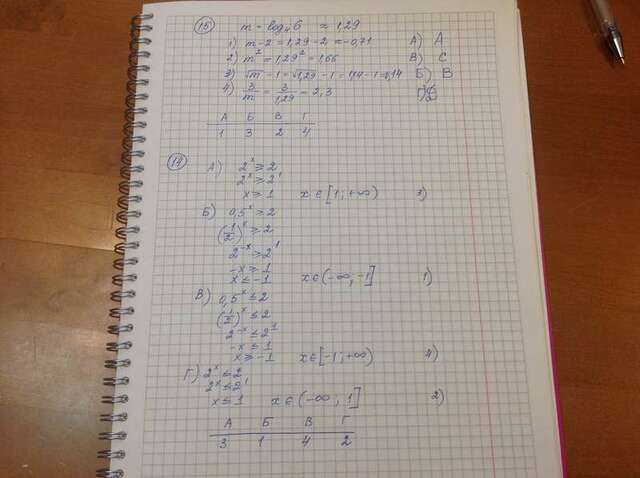 15 m = log₄6 ≈ 1,29
1) m-2 = 1,29-2 = -0,71 А) A
2) m² = 1,29² = 1,66 В) C
3) √m - 1 = √1,29 - 1 = 1,14-1=0,14 Б) B
4) 3/m = 3/1,29 = 2,3 Г)
А Б В Г
1 3 2 4
14 А) 2ˣ ≥ 2
2ˣ ≥ 2¹
x ≥ 1 x∈[1;+∞) 3)
Б) 0,5ˣ ≥ 2
(1/2)ˣ ≥ 2
2⁻ˣ ≥ 2¹
-x ≥ 1
x ≤ -1 x∈(-∞,-1] 1)
В) 0,5ˣ ≤ 2
(1/2)ˣ ≤ 2
2⁻ˣ ≤ 2¹
-x ≤ 1
x ≥ -1 x∈[-1;+∞) 4)
Г) 2ˣ ≤ 2
2ˣ ≤ 2¹
x ≤ 1 x∈(-∞; 1] 2)
А Б В Г
3 1 4 2